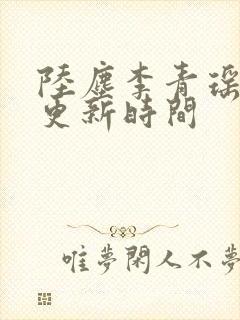 陸塵李青瑶
更新時間
唯夢閑人不夢